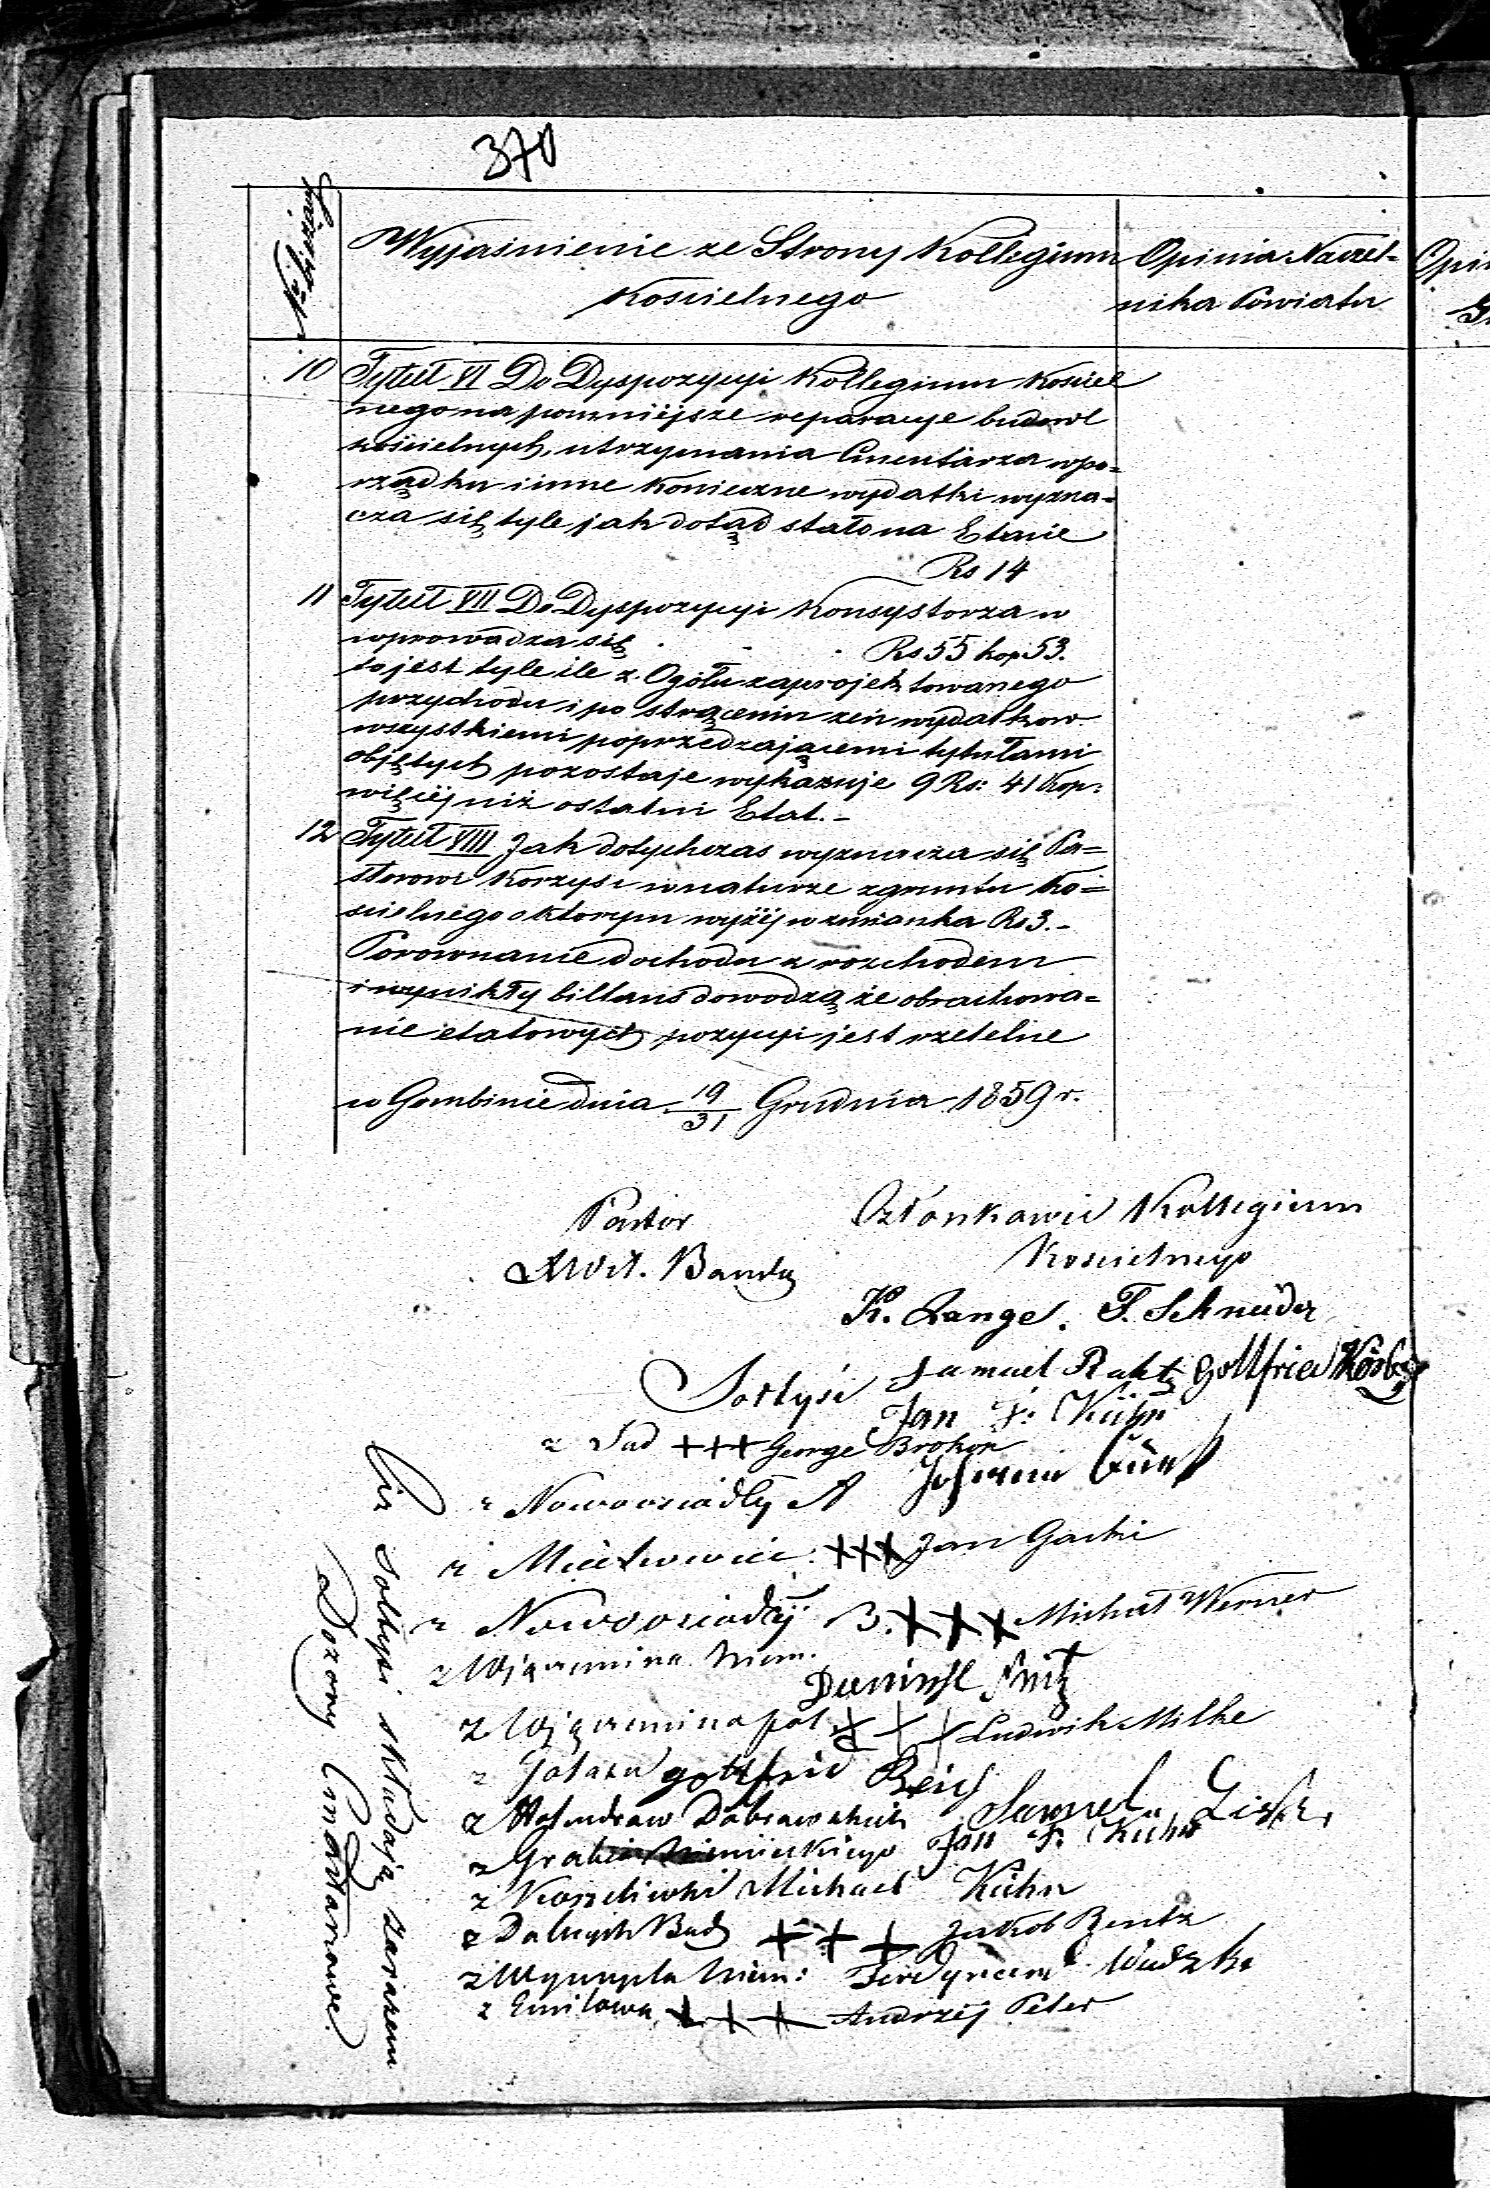 370
Liczba
Wyjaśnienie ze Strony Kollegium
Kościelnego
Opinia Naczel-
nika Powiatu
Opin
10 Tytuł VI Do Dyspozycyi Kollegium Kościel
nego na pomniejsze reparacye budowl
kościelnych, utrzymania Cmentarza w po-
rządku i inne konieczne wydatki wyzna-
cza się tyle jak dotąd stało na Etacie
Rs 14
11 Tytuł VII Do Dyspozycyi Konsystorza w
wprowadza się . . . Rs 55 kop 53.
to jest tyle ile z Ogołu zaprojektowanego
przychodu i po strąceniu zeń wydatkow
wszystkiemi poprzedzającemi tytułami
objętych pozostaje wykazuje 9 Rs: 41 Kop:
więcij niż ostatni Etat. -
12 Tytuł VIII Jak dotychczas wyznacza się Pa=
storowi Korzyści w naturze z gruntu Ko=
scielnego o ktorym wyżij wzmianka Rs 3. -
Porownanie dochodu z rozchodem
i wynikły billans dowodzą że obrachowa=
nie etatowych pozycyi jest rzetelne
w Gombinie dnia 19/31 Grudnia 1859 r.
Pastor
Członkowie Kollegium
Kościelnego
K. Lange. F. Schneider
Samuel Gottfried
Sołtysi
Jan F. Kühn
z Sad +++ George
Johann
z Nowoosiadły A
z +++ Jan Gacki
z Nowoosiadły B. +++ Michał Werner
z Wjączemina Niem.
z Wjączemina pol +++ Ludwik Milke
z Gottfried Reich
z Holendrow Dobrowskich Samuel
z Jan F. Kühn
z Michael Kühn
z Dolnych Bud +++ Jakob Bentz
z Niem: Ferdynand
z Emilowa +++ Andrzej Peter
Ciż Sołtysi składają zarazem
Dozory Cmentarzowe.